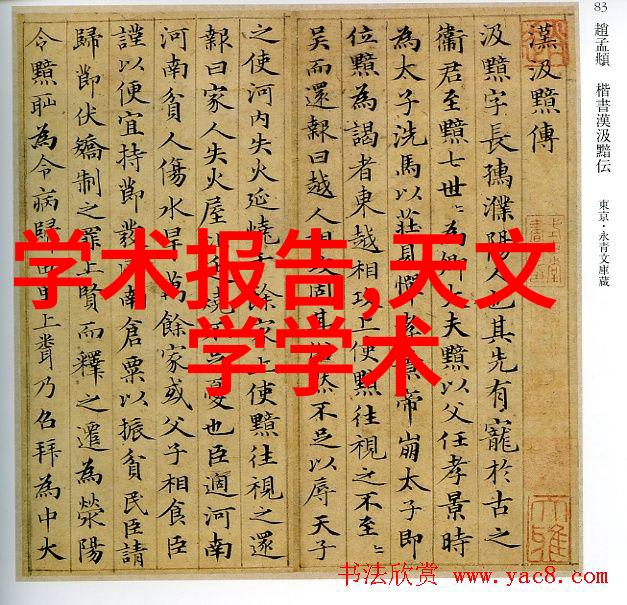 83
趙孟頫 楷書漢汲黯伝 東京・永青文庫蔵
漢汲黯傳
汲黯字長孺濮陽人也其先有寵於古之
衛君至黯七世〻為卿大夫黯以父任孝景時
為太子洗馬以莊見憚孝景帝崩太子即
位黯為謁者東越相攻上使黯往視之不至〻
吳而還報曰越人相攻固其俗然不足以辱天子
之使河內失火延燒千餘家上使黯往視之還
報曰家人失火屋比延燒不足憂也臣適河南
河南貧人傷水旱萬餘家或父子相食臣
謹以便宜持節發河南倉粟以振貧民臣請
歸節伏矯制之罪上賢而釋之遷為滎陽
令黯恥為令病歸田里上聞乃召拜為中大
学术报告,天文
学学术
书法欣赏 www.yac8.com